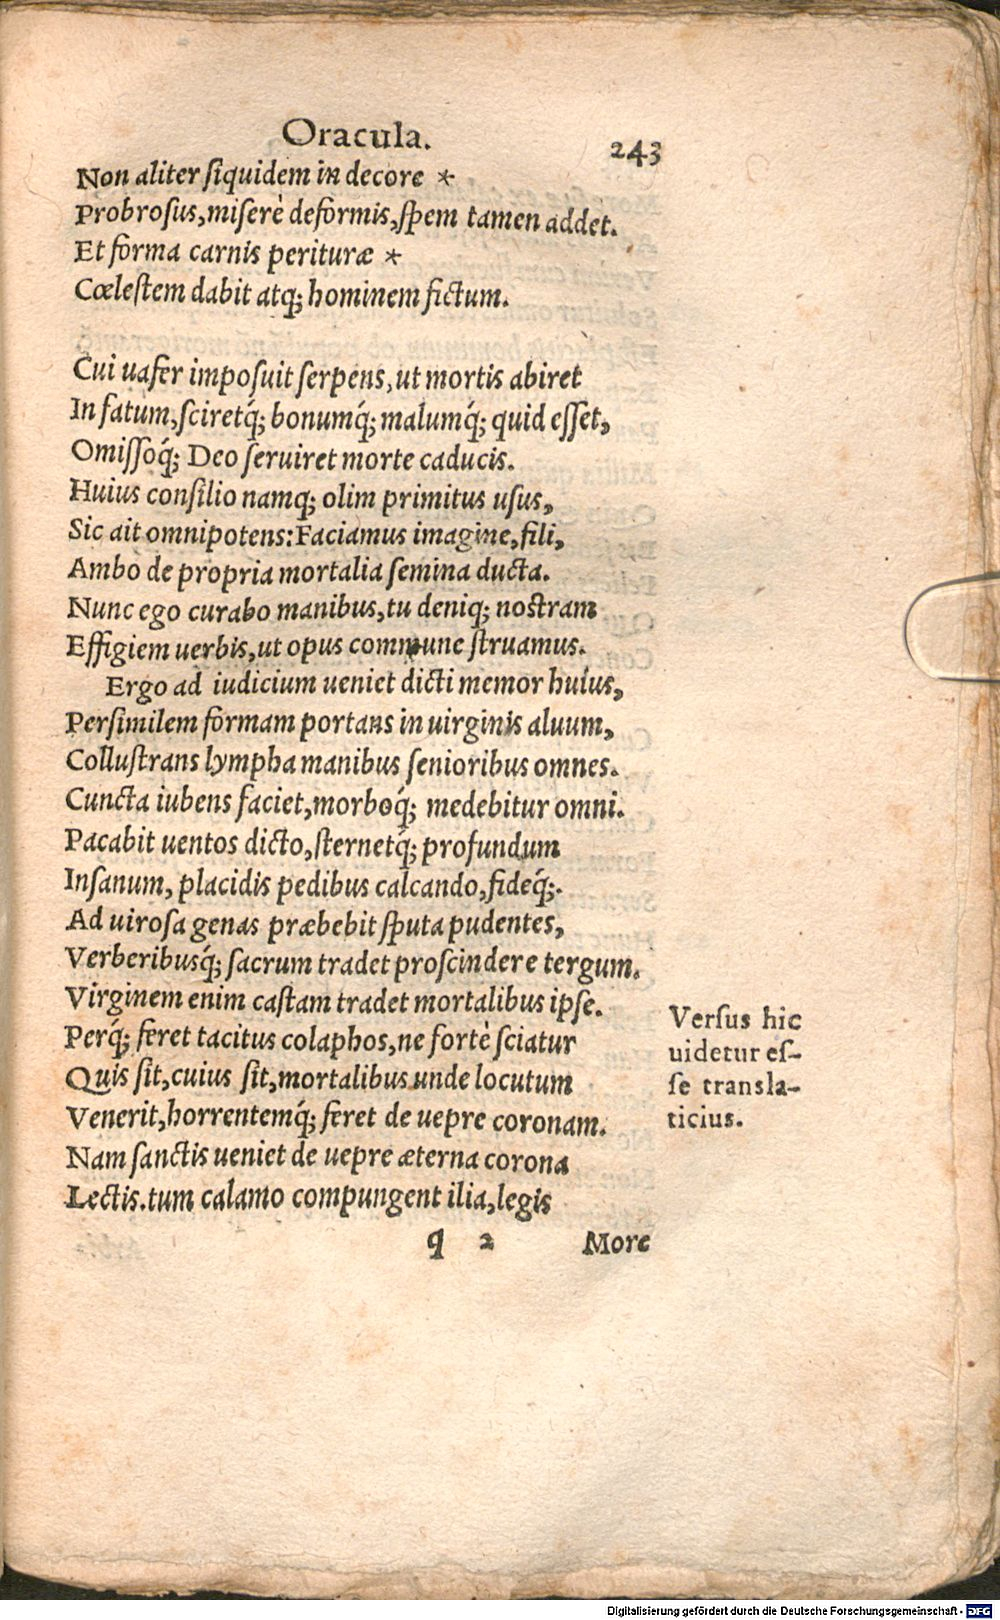 Oracula. 243
Non aliter ſiquidem in decore *
Probroſus, miſerè deformis, ſpem tamen addet.
Et forma carnis perituræ *
Cœleſtem dabit atq; hominem fictum.
Cui uafer impoſuit ſerpens, ut mortis abiret
In fatum, ſciretq́; bonumq́; malumq́; quid eſſet,
Omiſſoq́; Deo ſeruiret morte caducis.
Huius conſilio namq; olim primitus uſus,
Sic ait omnipotens: Faciamus imagine, fili,
Ambo de propria mortalia ſemina ducta.
Nunc ego curabo manibus, tu deniq; noſtram
Effigiem uerbis, ut opus commune ſtruamus.
Ergo ad iudicium ueniet dicti memor huius,
Perſimilem formam portans in uirginis aluum,
Colluſtrans lympha manibus ſenioribus omnes.
Cuncta iubens faciet, morboq́; medebitur omni.
Pacabit uentos dicto, ſternetq́; profundum
Inſanum, placidis pedibus calcando, fideq́;.
Ad uiroſa genas præbebit ſputa pudentes,
Verberibusq́; ſacrum tradet proſcindere tergum.
Virginem enim caſtam tradet mortalibus ipſe.
Perq́; feret tacitus colaphos, ne fortè ſciatur
Quis ſit, cuius ſit, mortalibus unde locutum
Venerit, horrentemq́; feret de uepre coronam.
Nam ſanctis ueniet de uepre æterna corona
Lectis. tum calamo compungent ilia, legis
Verſus hic
uidetur eſ-
ſe transla-
ticius.
q 2 More
Digitalisierung gefördert durch die Deutsche Forschungsgemeinschaft - DFG